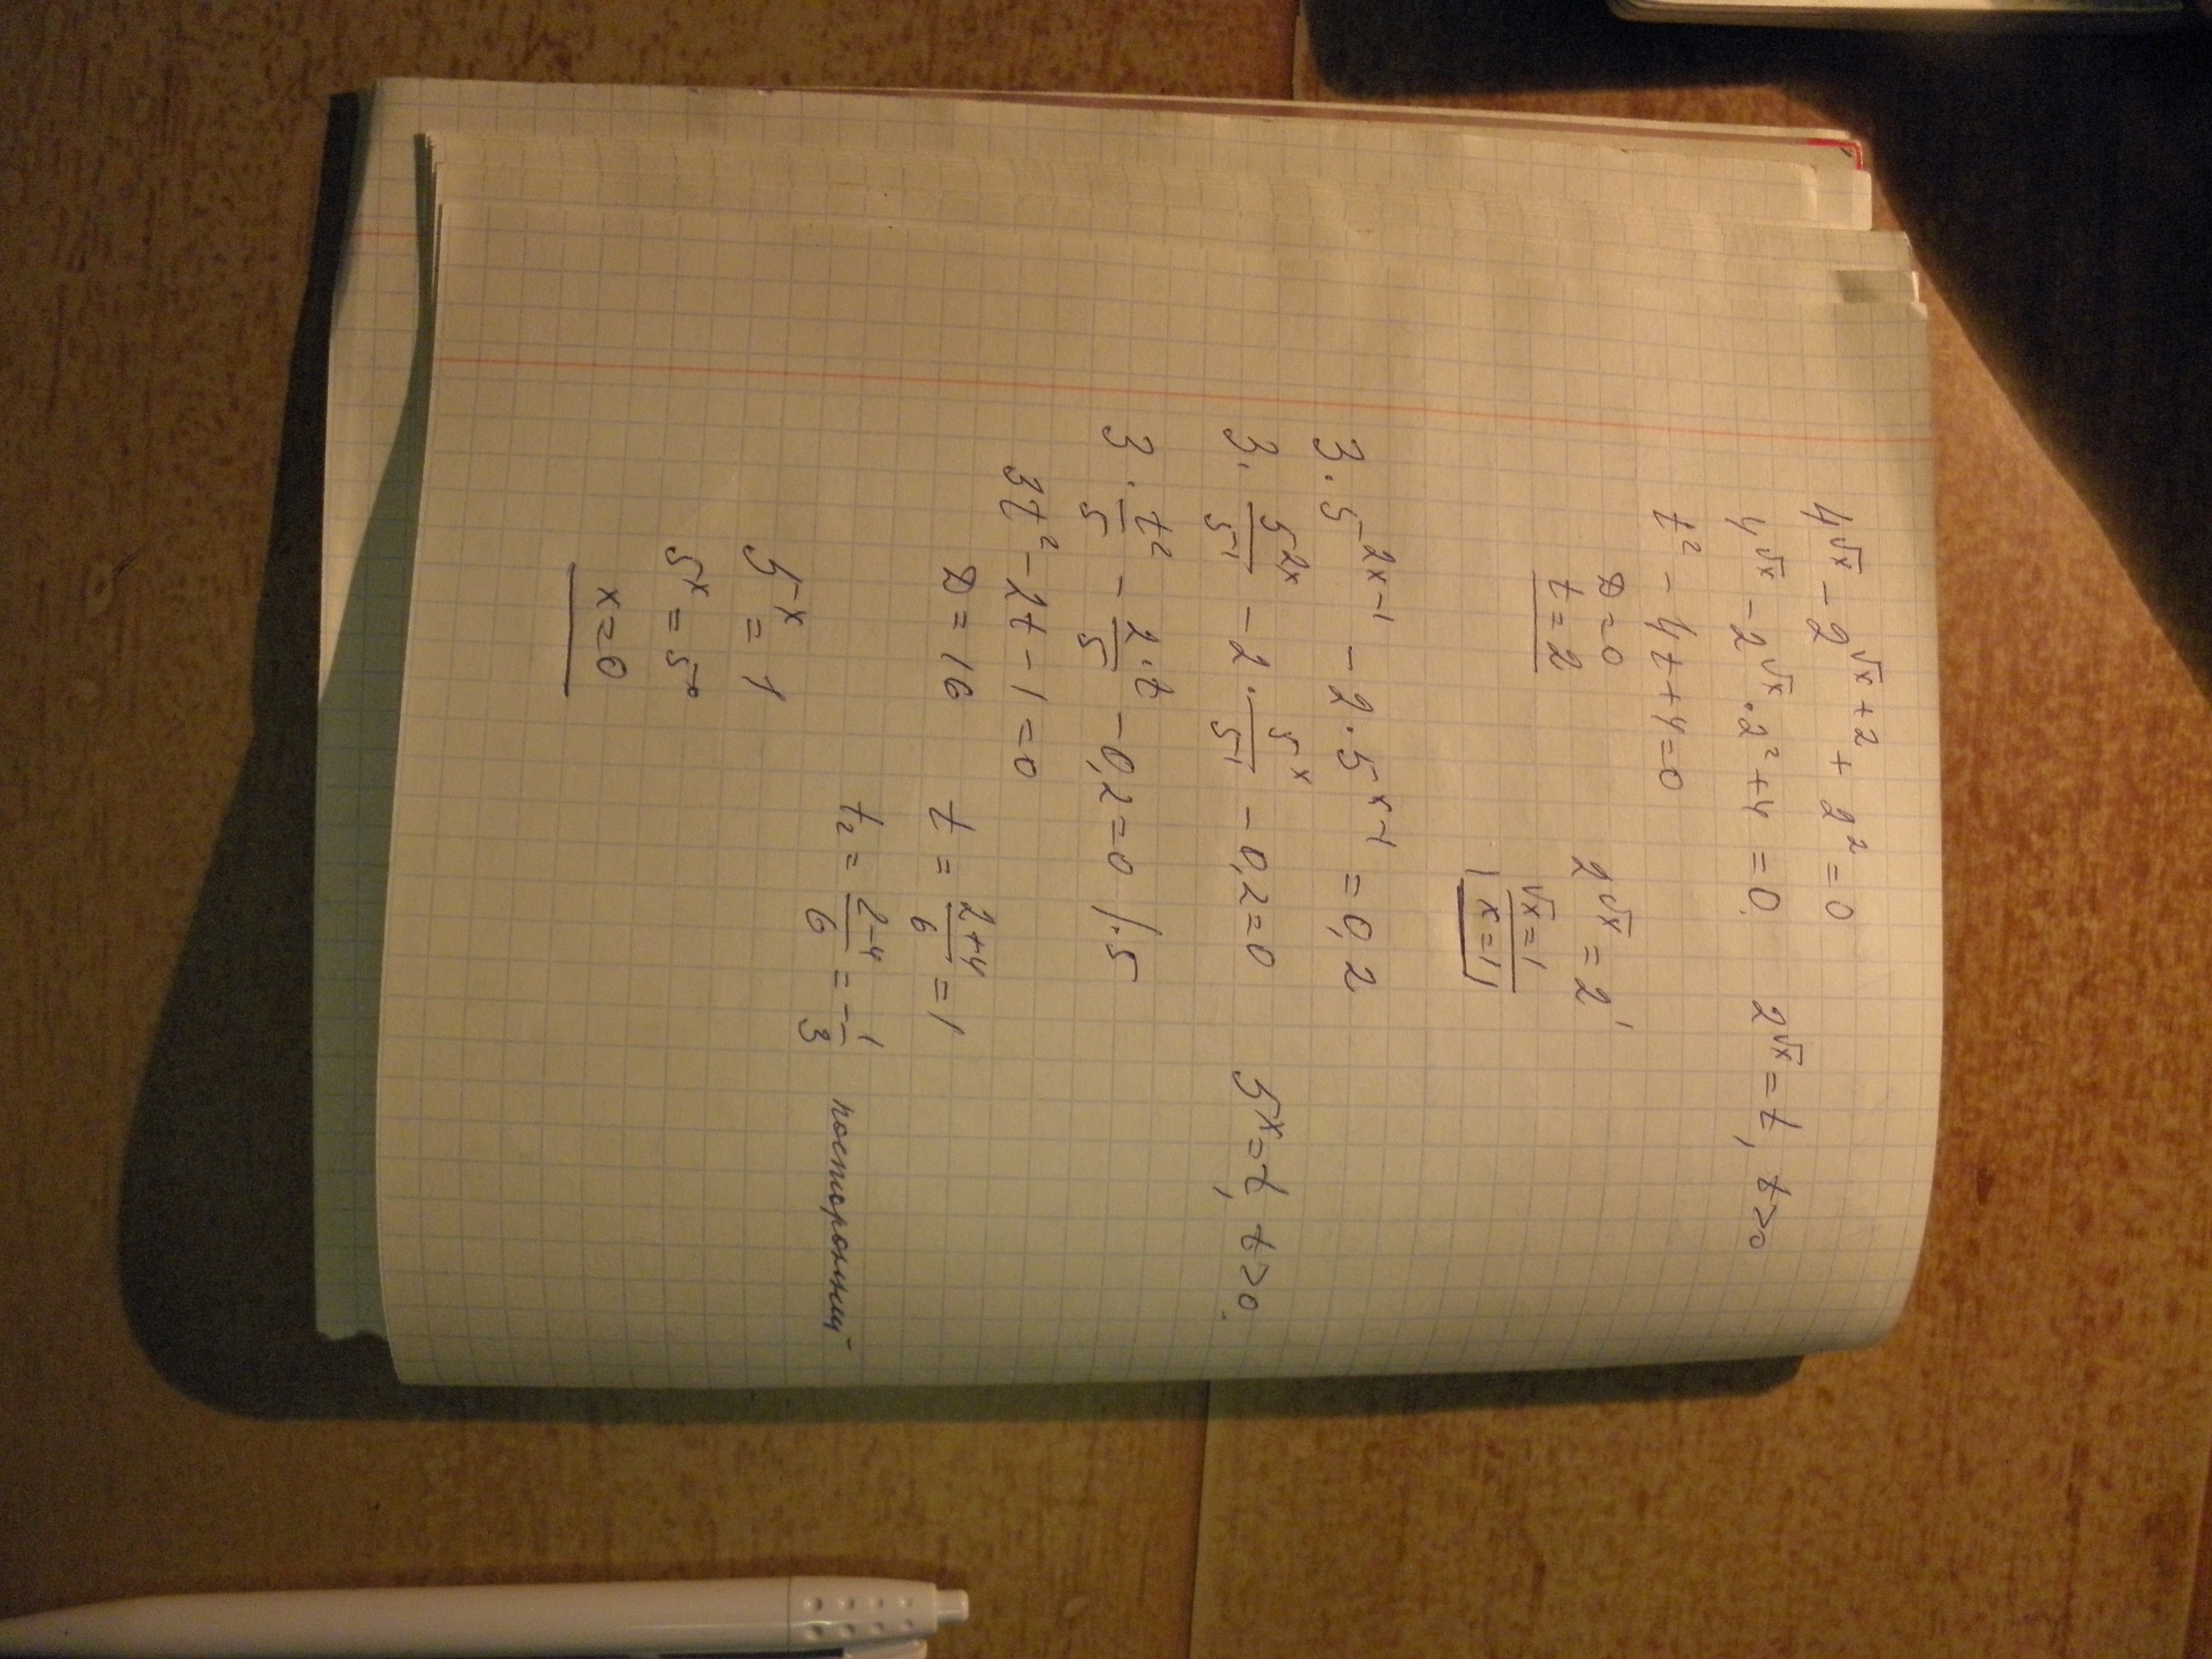 4^{√x} - 2^{√x+2} + 2² = 0
4^{√x} - 2^{√x} · 2² + 4 = 0. 2^{√x} = t, t>0
t² - 4t + 4 = 0
D = 0
t = 2
2^{√x} = 2¹
√x = 1
x = 1
3 · 5^{2x-1} - 2 · 5^{x-1} = 0,2
3 · 5^{2x}/5¹ - 2 · 5^x/5¹ - 0,2 = 0 5^x = t, t>0.
3 · t²/5 - 2·t/5 - 0,2 = 0 /·5
3t² - 2t - 1 = 0
D = 16 t = (2+4)/6 = 1
t₂ = (2-4)/6 = -1/3 посторонний
5^x = 1
5^x = 5⁰
x = 0